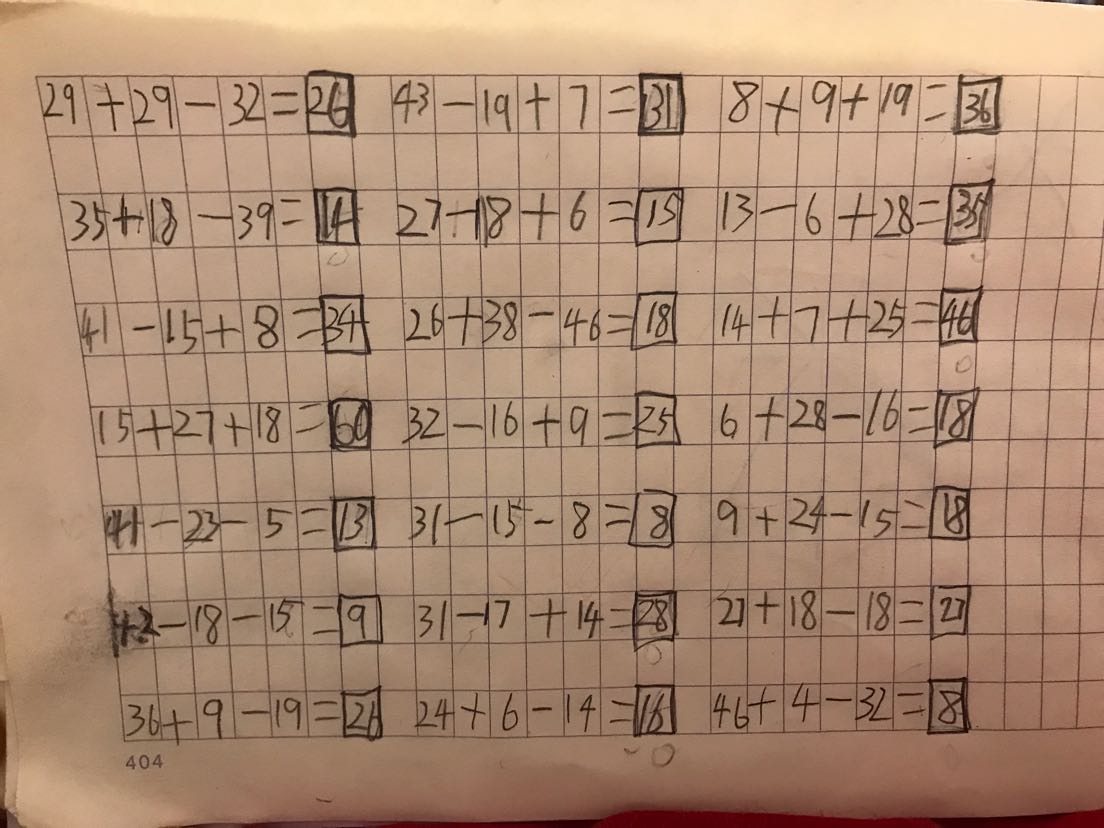 29+29-32=26 43-19+7=31 8+9+19=36
35+18-39=14 27-18+6=15 13-6+28=35
41-15+8=34 26+38-46=18 14+7+25=46
15+27+18=60 32-16+9=25 6+28-16=18
41-23-5=13 31-15-8=8 9+24-15=18
42-18-15=9 31-17+14=28 27+18-18=27
36+9-19=26 24+6-14=16 46+4-32=8
404